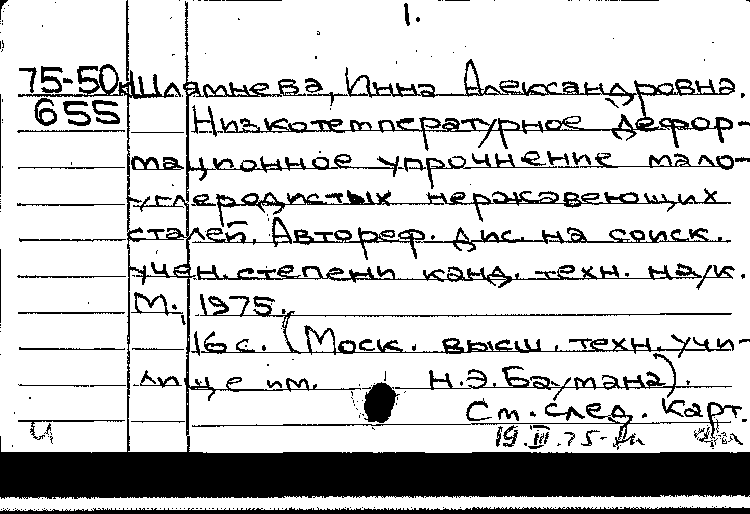 1.
75-50к Шлямнева, Инна Александровна.
655 Низкотемпературное дефор-
мационное упрочнение мало-
углеродистых нержавеющих
сталей. Автореф. дис. на соиск.
учен. степени канд. техн. наук.
М., 1975.
16 с. (Моск. высш. техн. учи-
лище им. Н.Э.Баумана).
См. след. карт.
19.III.75